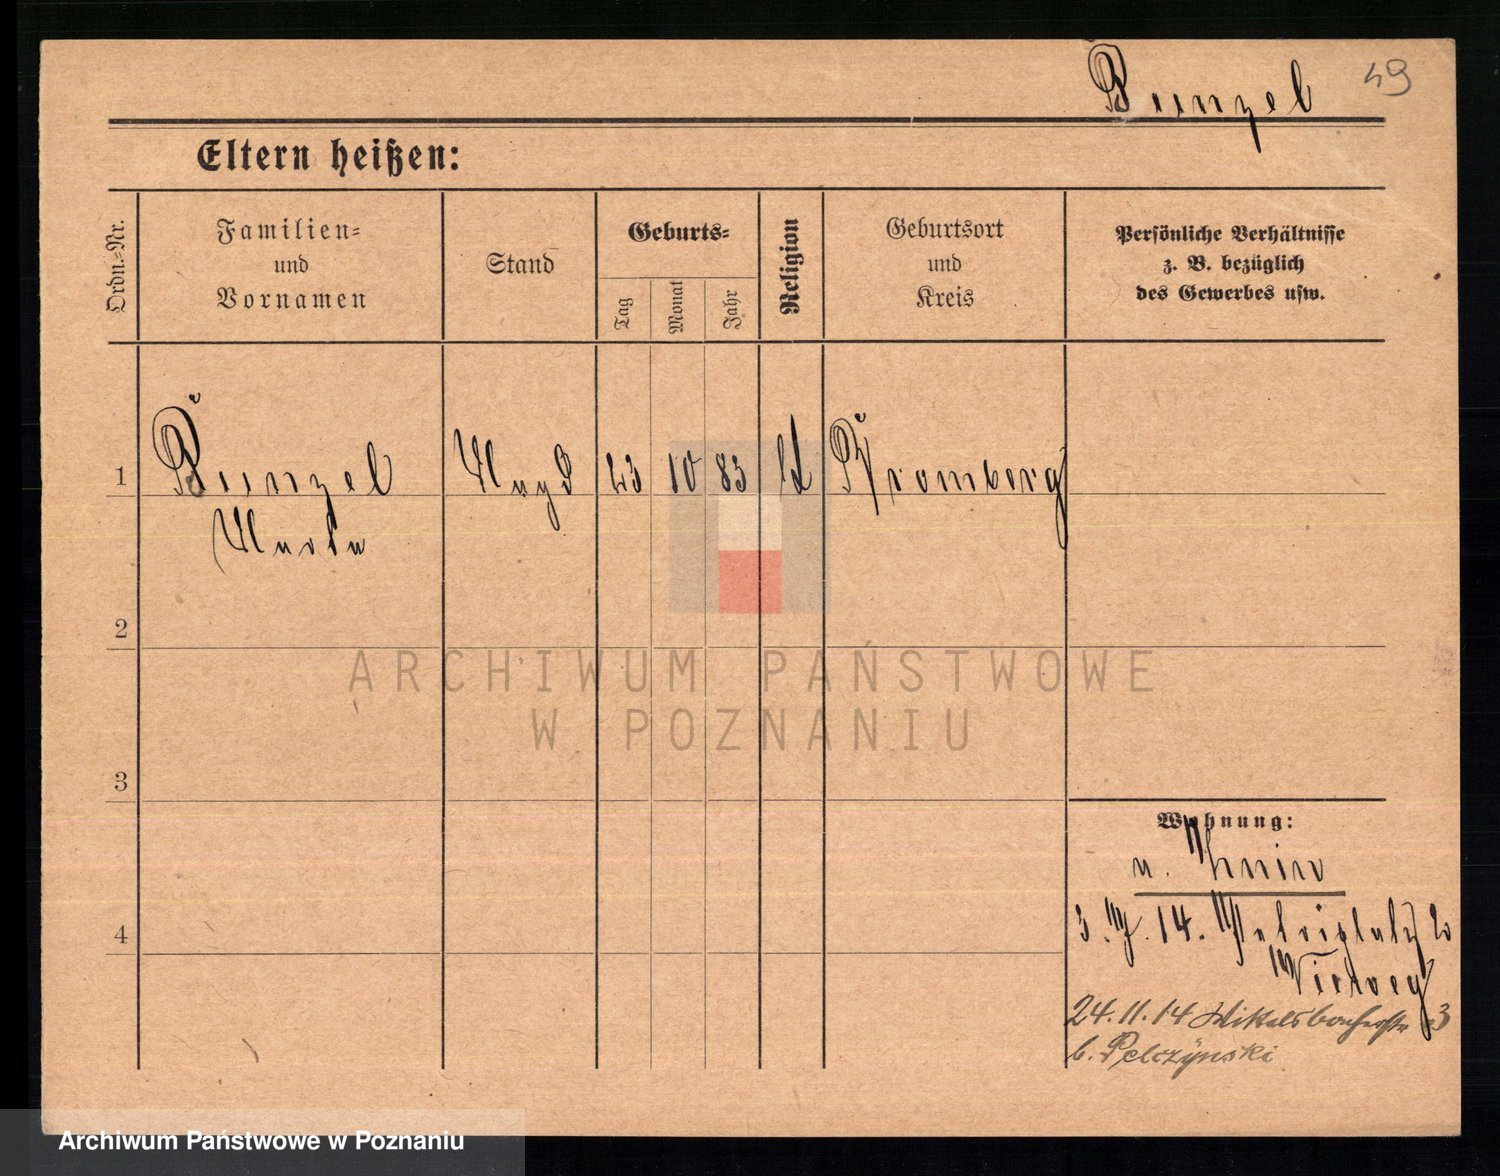 Bunzel 49
Eltern heißen:
Ordn.-Nr.
Familien-
und
Vornamen
Stand
Geburts-
Tag
Monat
Jahr
Religion
Geburtsort
und
Kreis
Persönliche Verhältnisse
z. B. bezüglich
des Gewerbes usw.
1 Bunzel Magd 23 10 83 Bromberg
Marta
2
ARCHIWUM PAŃSTWOWE
W POZNANIU
3
Wohnung:
n. Znin
4
3. 14. Petriplatz 2
24.11.14 3
b. Pelczynski
Archiwum Państwowe w Poznaniu